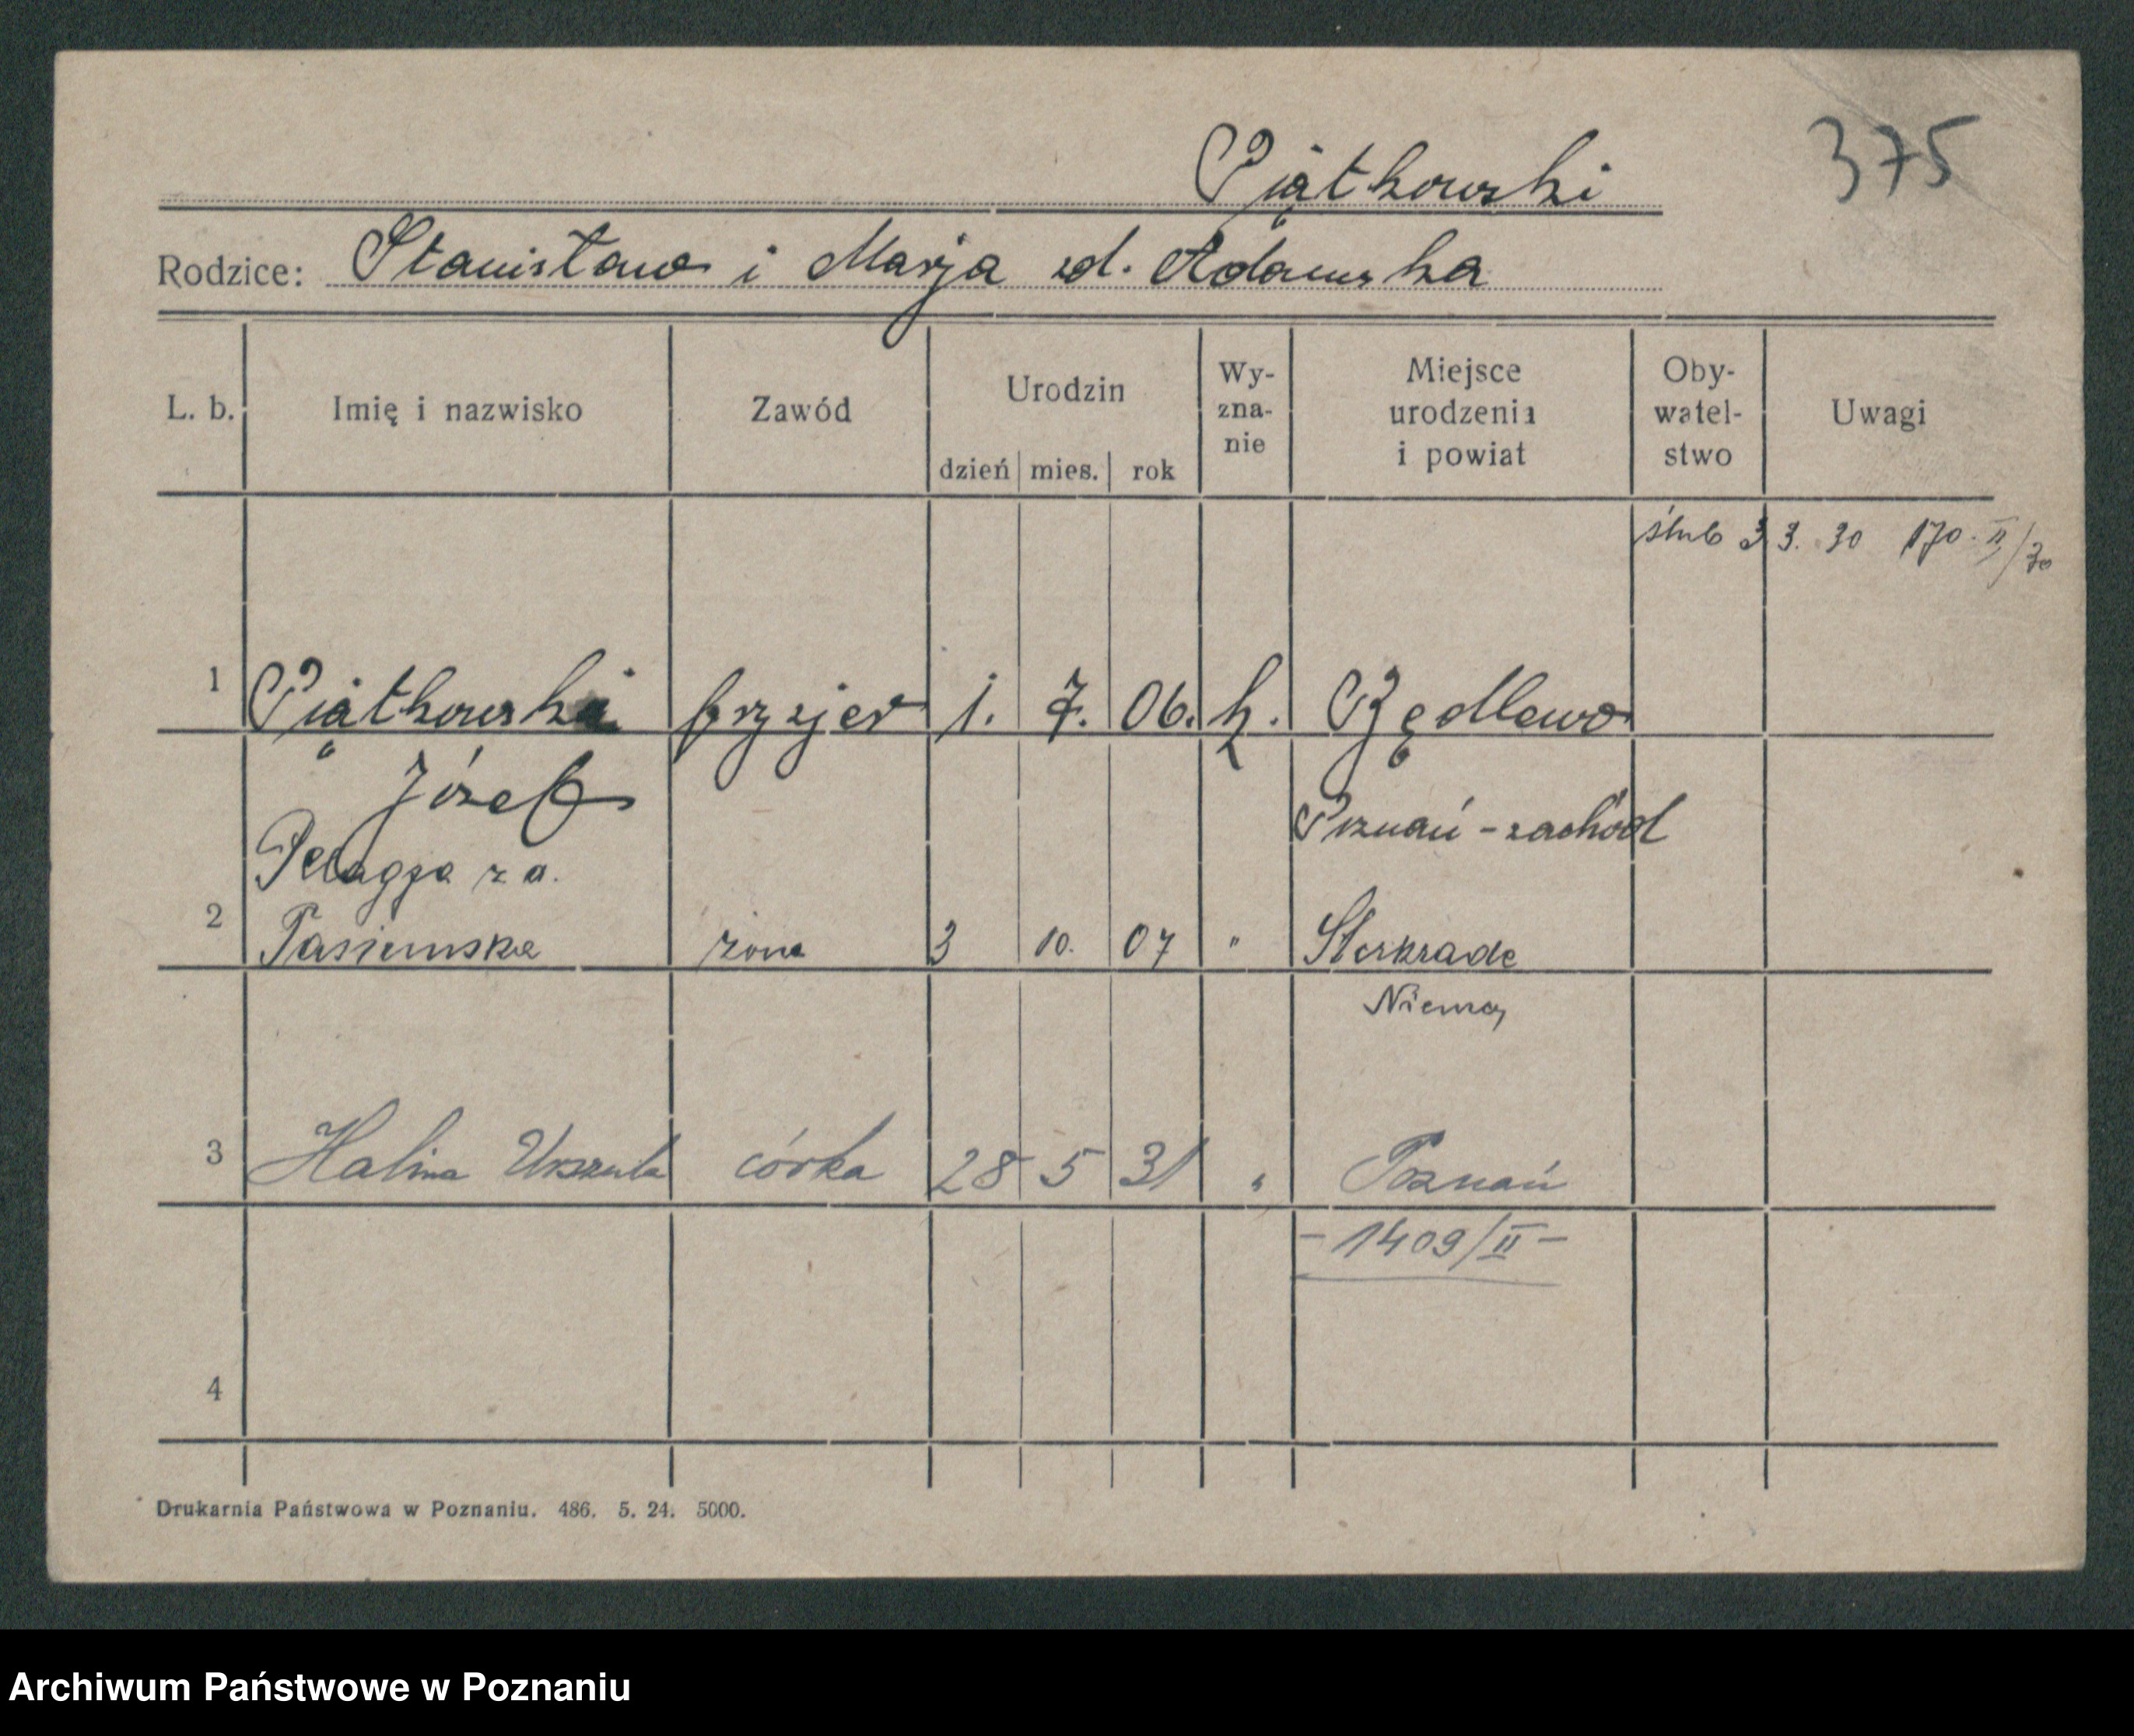 Piątkowski
375
Rodzice: Stanisław i Marja zd. Adamska
L. b. Imię i nazwisko Zawód Urodzin dzień mies. rok Wy-zna-nie Miejsce urodzenia i powiat Oby-watel-stwo Uwagi
ślub 3 3. 30 170. II/30
1 Piątkowski fryzjer 1. 7. 06. k. Będlewo
Józef
Poznań-zachód
Pelagja z d.
2 Pasiemska żona 3 10. 07 " Sterkrade
Niemcy
3 Halina Urszula córka 28 5 31 " Poznań
- 1409/II -
4
Drukarnia Państwowa w Poznaniu. 486. 5. 24. 5000.
Archiwum Państwowe w Poznaniu